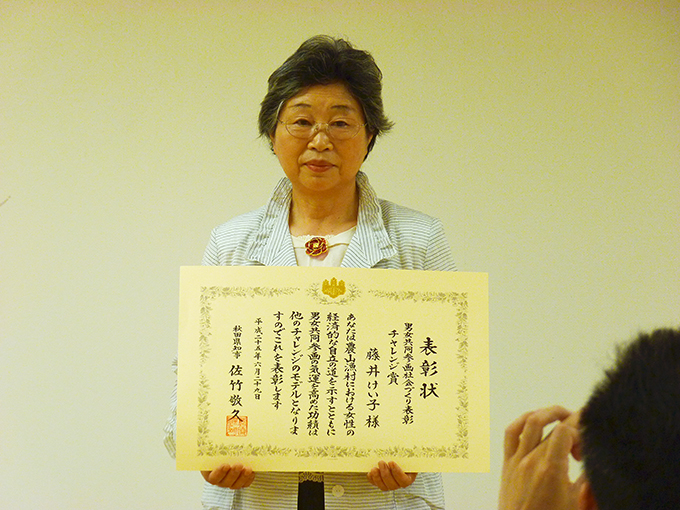 表彰状
男女共同参画社会づくり表彰
チャレンジ賞
藤井けい子 様
あなたは農山漁村における女性の
経済的な自立の道を示すとともに
男女共同参画の気運を高めた功績は
他のチャレンジのモデルとなりま
すのでこれを表彰します
平成二十五年六月二十九日
秋田県知事 佐竹敬久